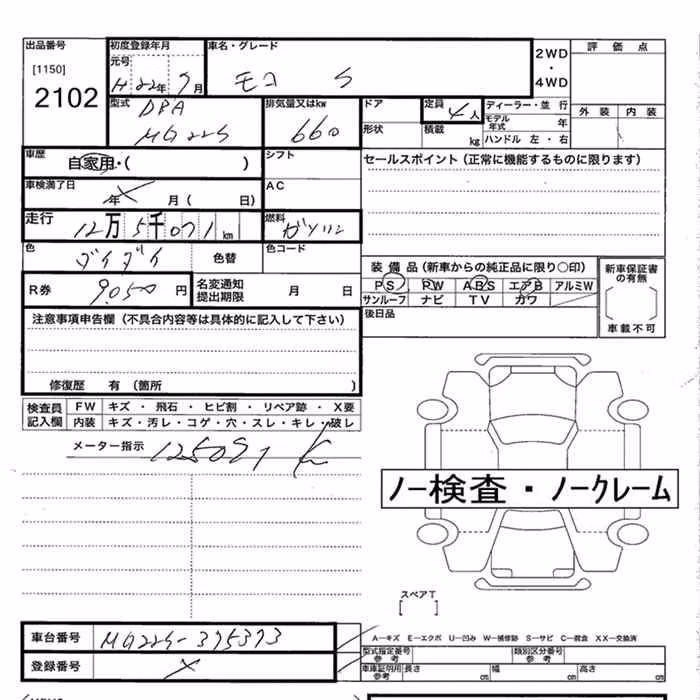 出品番号 初度登録年月 車名・グレード 2WD・4WD 評価点
[1150] 元号
2102 H22年9月 モコ S
型式 排気量又はkw ドア 定員 4人 ディーラー・並行 外装 内装
DBA 660 モデル年式 年
MG22S 形状 積載 kg ハンドル 左・右
車歴 自家用・( ) シフト セールスポイント (正常に機能するものに限ります)
車検満了日 年 月 ( 日) AC
走行 12万5千071km 燃料 ガソリン
色 色替 色コード
装備品 (新車からの純正品に限り○印) 新車保証書の有無
R券 9050円 名変通知提出期限 月 日 PS PW ABS エアB アルミW
サンルーフ ナビ TV カワ
車載不可
注意事項申告欄 (不具合内容等は具体的に記入して下さい) 後日品
修復歴 有 (箇所 )
検査員記入欄 FW キズ ・ 飛石 ・ ヒビ割 ・ リペア跡 ・ X要
内装 キズ・汚レ・コゲ・穴・スレ・キレ・破レ
メーター指示
ノー検査・ノークレーム
スペアT
[ ]
車台番号 MG22S-375373 A―キズ E―エクボ U―凹み W―補修跡 S―サビ C―腐食 XX―交換済
型式指定番号 参考 類別区分番号 参考
登録番号 X 車庫証明用 参考 長さ cm 幅 cm 高さ cm